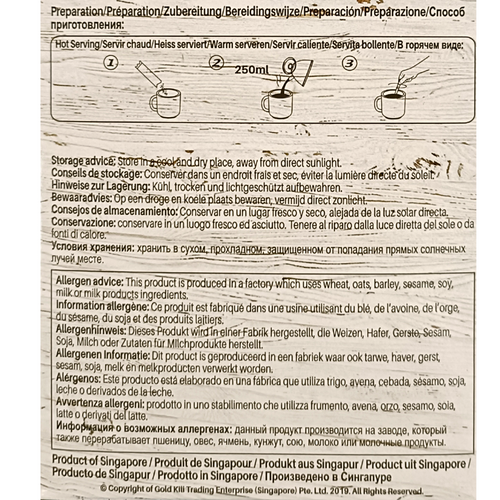 Preparation/Préparation/Zubereitung/Bereidingswijze/Preparación/Preparazione/Способ
приготовления:
Hot Serving/Servir chaud/Heiss serviert/Warm serveren/Servir caliente/Servita bollente/В горячем виде:
1 2 250ml 3
Storage advice: Store in a cool and dry place, away from direct sunlight.
Conseils de stockage: Conserver dans un endroit frais et sec, éviter la lumière directe du soleil.
Hinweise zur Lagerung: Kühl, trocken und lichtgeschützt aufbewahren.
Bewaaradvies: Op een droge en koele plaats bewaren, vermijd direct zonlicht.
Consejos de almacenamiento: Conservar en un lugar fresco y seco, alejada de la luz solar directa.
Conservazione: conservare in un luogo fresco ed asciutto. Tenere al riparo dalla luce diretta del sole o da
fonti di calore.
Условия хранения: хранить в сухом, прохладном, защищенном от попадания прямых солнечных
лучей месте.
Allergen advice: This product is produced in a factory which uses wheat, oats, barley, sesame, soy,
milk or milk products ingredients.
Information allergène: Ce produit est fabriqué dans une usine utilisant du blé, de l'avoine, de l'orge,
du sésame, du soja et des produits laitiers.
Allergenhinweis: Dieses Produkt wird in einer Fabrik hergestellt, die Weizen, Hafer, Gerste, Sesam,
Soja, Milch oder Zutaten für Milchprodukte herstellt.
Allergenen Informatie: Dit product is geproduceerd in een fabriek waar ook tarwe, haver, gerst,
sesam, soja, melk en melkproducten verwerkt worden.
Alérgenos: Este producto está elaborado en una fábrica que utiliza trigo, avena, cebada, sésamo, soja,
leche o derivados de la leche.
Avvertenza allergeni: prodotto in uno stabilimento che utilizza frumento, avena, orzo, sesamo, soia,
latte o derivati del latte.
Информация о возможных аллергенах: данный продукт производится на заводе, который
также перерабатывает пшеницу, овес, ячмень, кунжут, сою, молоко или молочные продукты.
Product of Singapore / Produit de Singapour / Produkt aus Singapur / Product uit Singapore /
Producto de Singapur / Prodotto in Singapore / Произведено в Сингапуре
© Copyright of Gold Kili Trading Enterprise (Singapore) Pte. Ltd. 2019. All Rights Reserved.